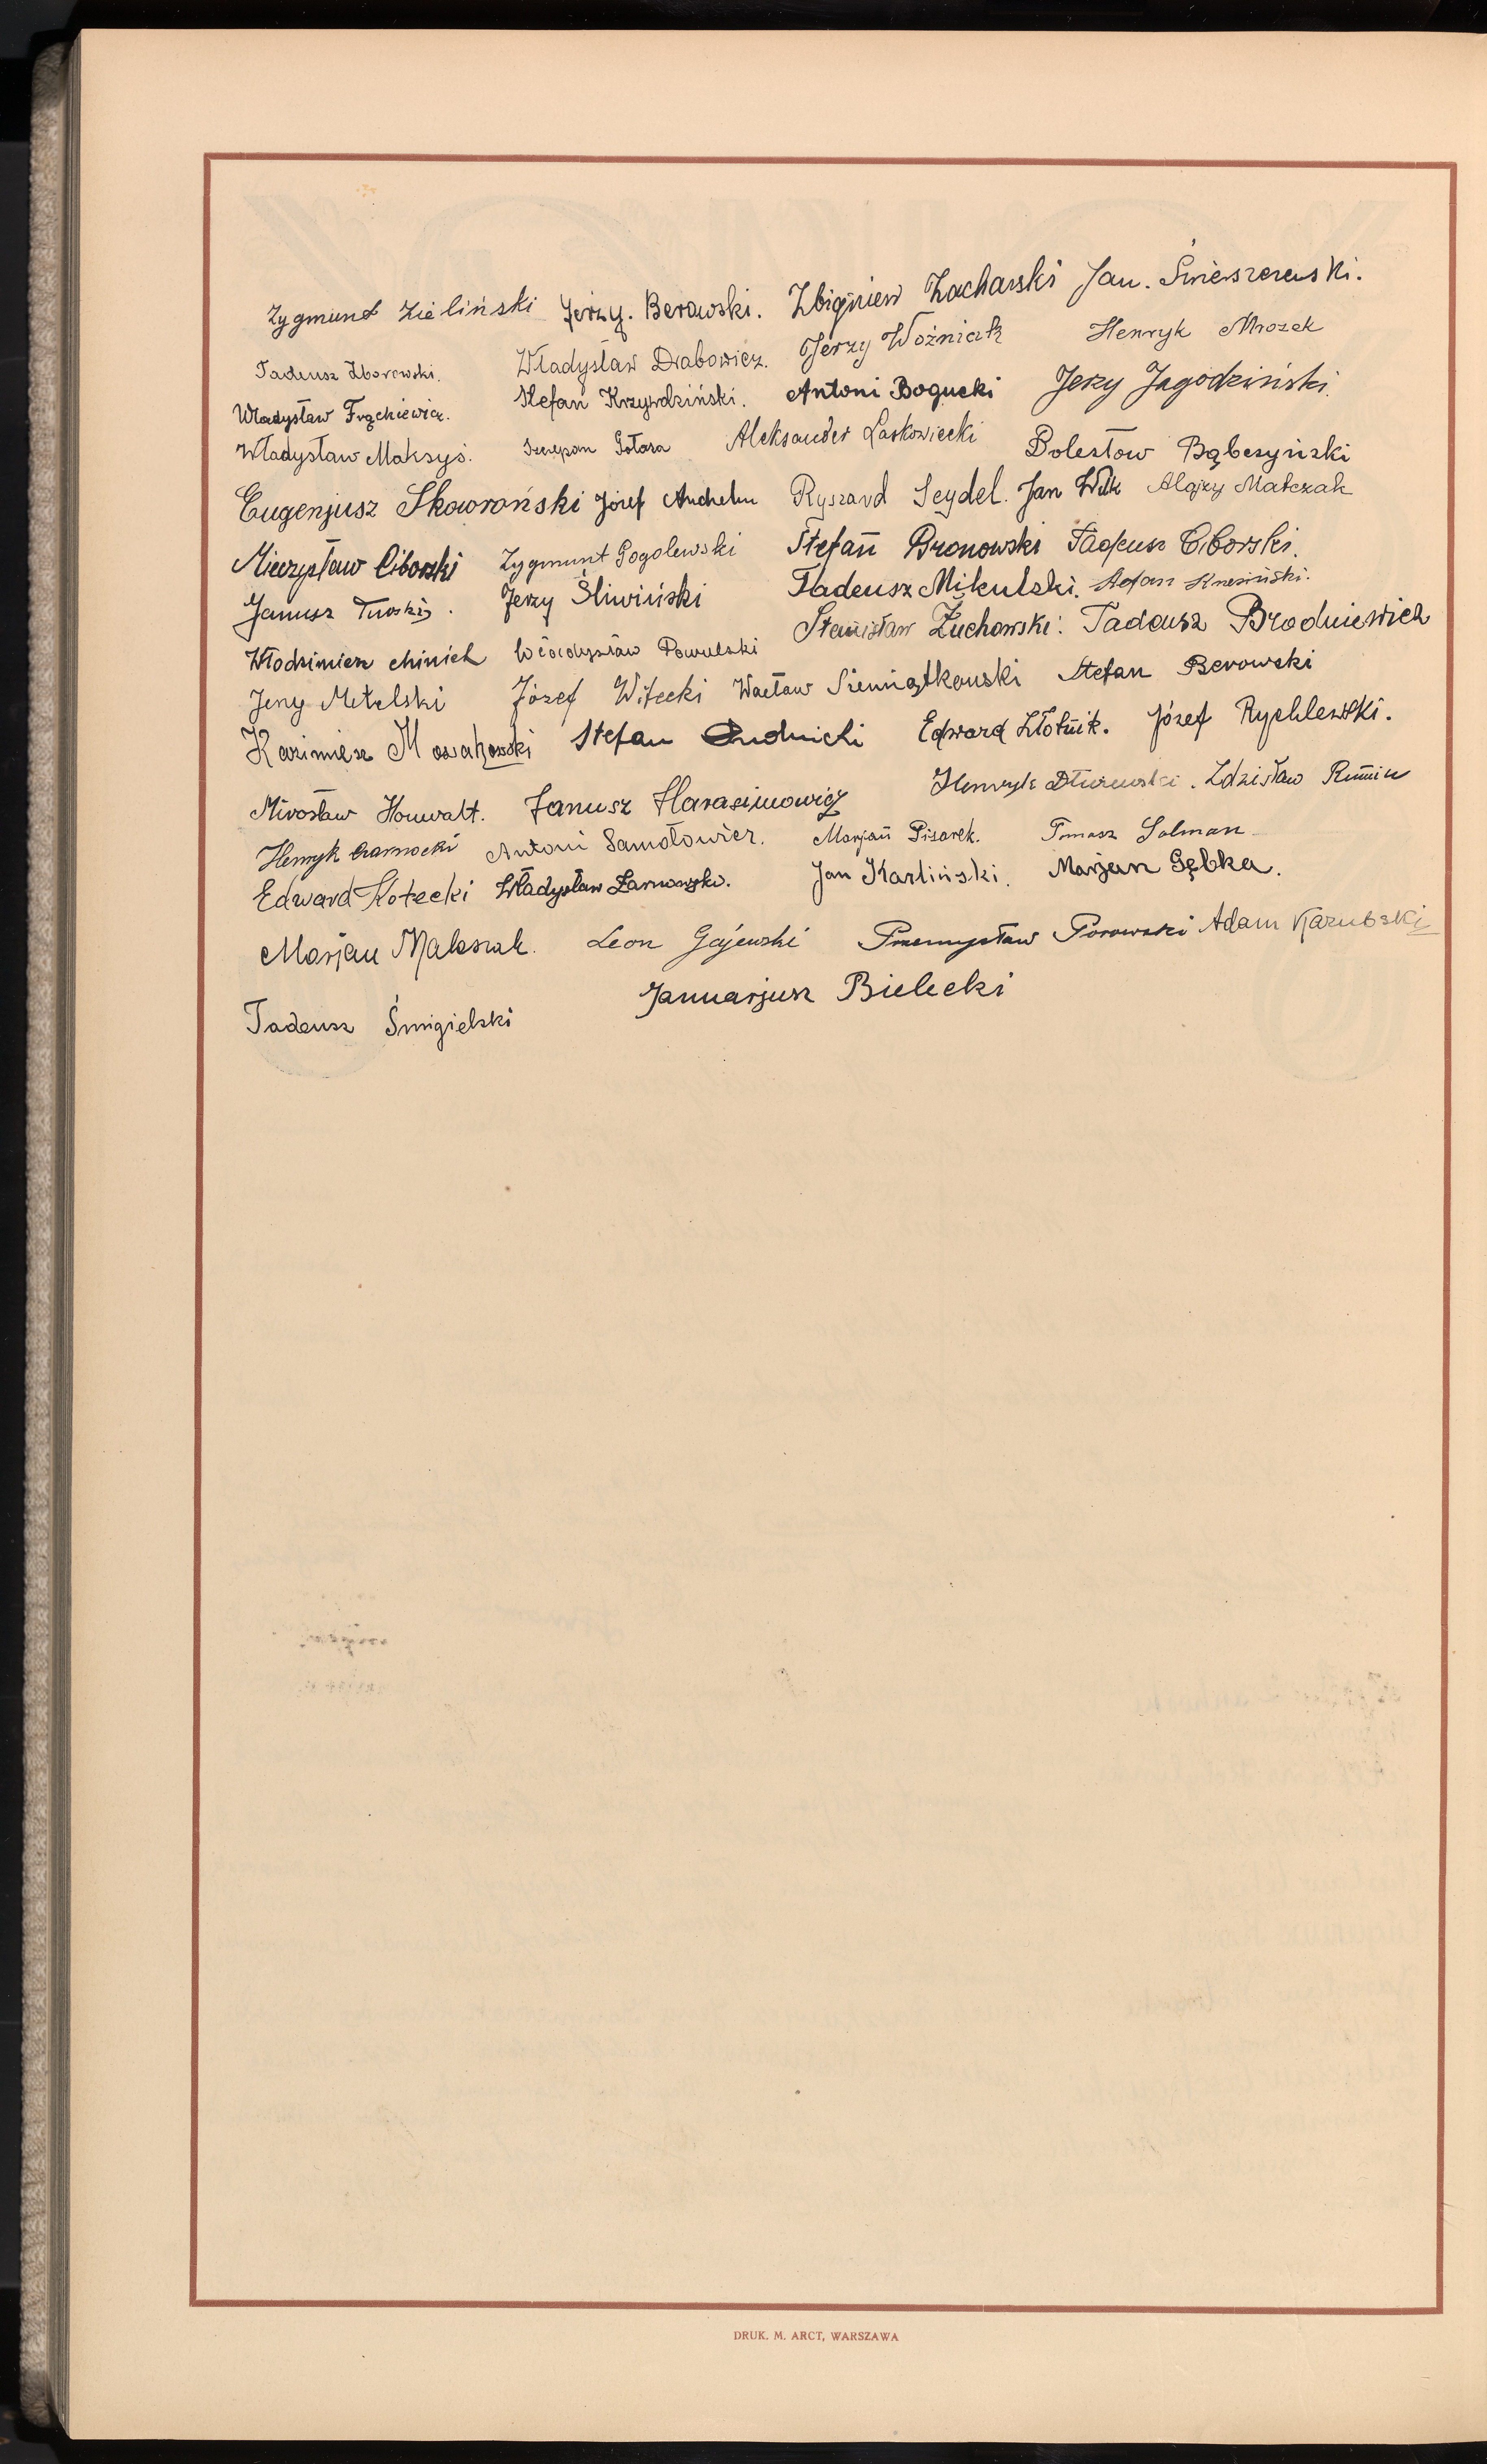 Zygmunt Zieliński Jerzy. Berowski. Zbigniew Zacharski Jan. Świerszczewski.
Tadeusz Zborowski. Władysław Drabowicz. Jerzy Woźniak Henryk Mrozek
Władysław Frąckiewicz. Stefan Krzywdziński. Antoni Bogucki Jerzy Jagodziński.
Władysław Maksyś. Szczepan Gołasa Aleksander Laskowiecki Bolesław Bąbczyński
Eugenjusz Skowroński Józef Ryszard Seydel. Jan Wilk Alojzy Matczak
Mieczysław Ciborski Zygmunt Gogolewski Stefan Bronowski Tadeusz Ciborski.
Janusz Turski. Jerzy Śliwiński Tadeusz Mikulski. Adam
Włodzimierz Władysław Pawulski Stanisław Żuchowski. Tadeusz Brodniewicz
Jerzy Metelski Józef Witecki Wacław Siemiątkowski Stefan Berowski
Kazimierz Stefan Rudnicki Edward Złotnik. Józef Rychlewski.
Mirosław Houwalt. Janusz Harasimowicz Henryk Zdzisław
Henryk Czarnocki Antoni Samołowicz. Marjan Pisarek. Tomasz Salman
Edward Kotecki Władysław Żarnowski. Jan Karliński. Marjan Gębka.
Marjan Maleszak. Leon Gajewski Przemysław Porowski Adam Karubski
Tadeusz Śmigielski Januarjusz Bielecki
DRUK. M. ARCT, WARSZAWA